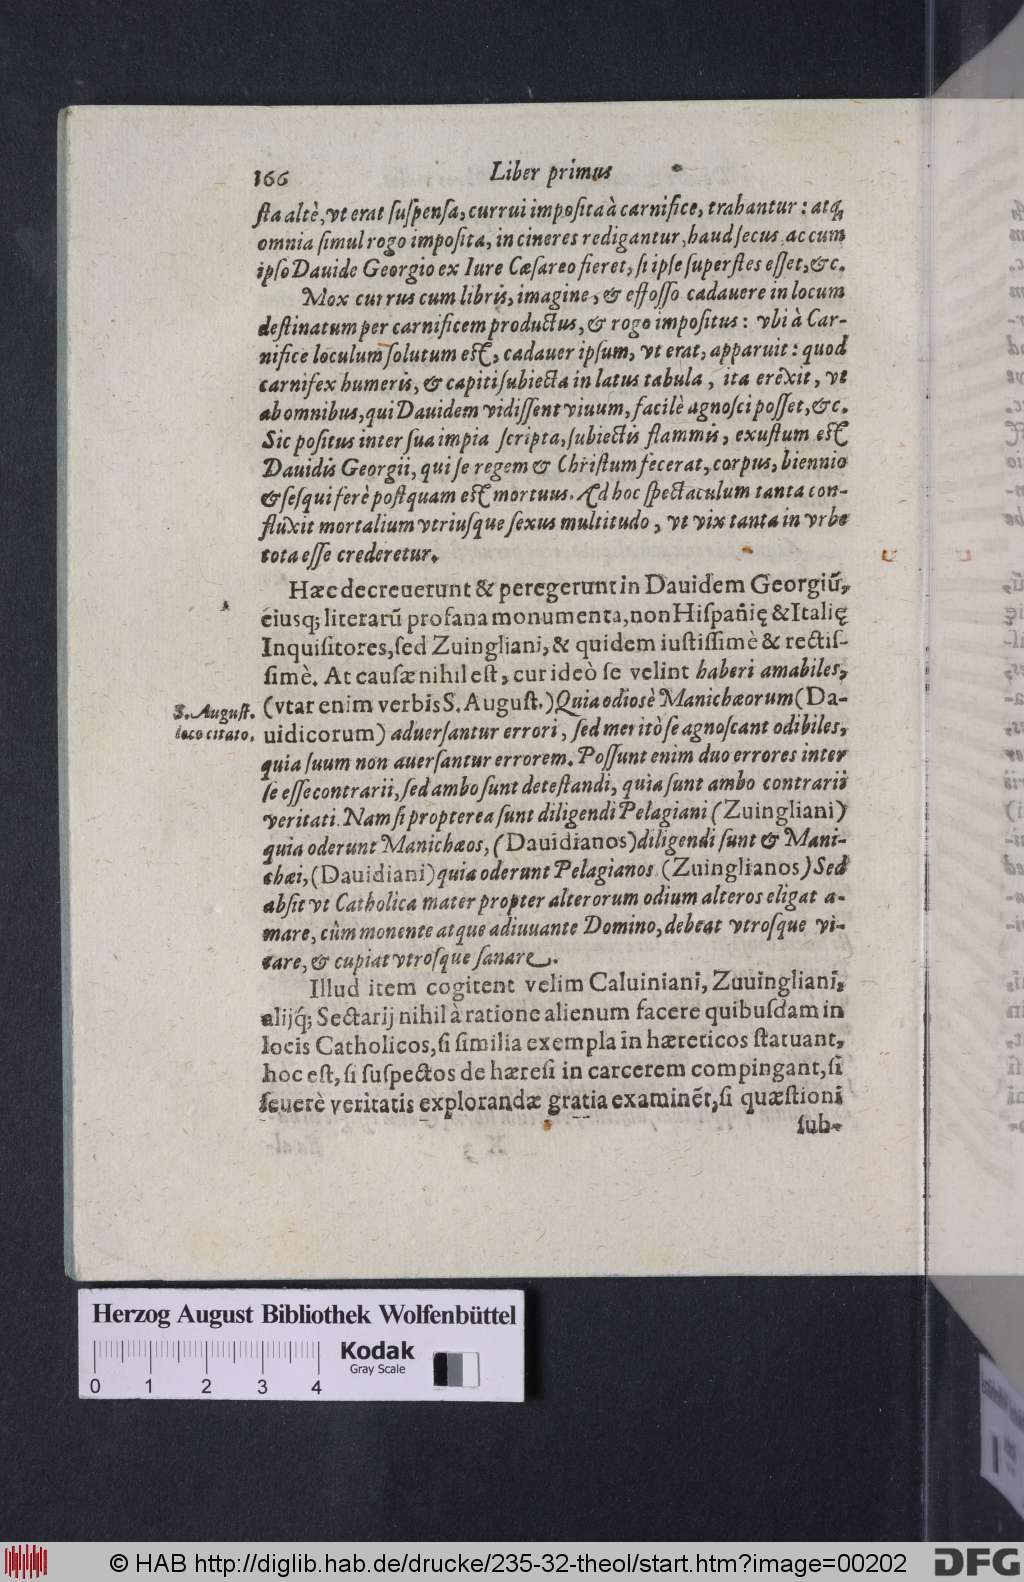 166 Liber primus
sta altè, vt erat suspensa, currui imposita à carnifice, trahantur: atq́,
omnia simul rogo imposita, in cineres redigantur, haud secus ac cum
ipso Dauide Georgio ex Iure Cæsareo fieret, si ipse superstes esset, &c.
Mox currus cum libris, imagine, & effosso cadauere in locum
destinatum per carnificem productus, & rogo impositus: vbi à Car-
nifice loculum solutum est, cadauer ipsum, vt erat, apparuit: quod
carnifex humeris, & capiti subiecta in latus tabula, ita erexit, vt
ab omnibus, qui Dauidem vidissent viuum, facilè agnosci posset, &c.
Sic positus inter sua impia scripta, subiectis flammis, exustum est
Dauidis Georgii, qui se regem & Christum fecerat, corpus, biennio
& sesqui ferè postquam est mortuus. Ad hoc spectaculum tanta con-
fluxit mortalium vtriusque sexus multitudo, vt vix tanta in vrbe
tota esse crederetur.
Hæc decreuerunt & peregerunt in Dauidem Georgiũ,
eiusq; literarũ profana monumenta, non Hispanię & Italię
Inquisitores, sed Zuingliani, & quidem iustissimè & rectis-
simè. At causæ nihil est, cur ideò se velint haberi amabiles,
(vtar enim verbis S. August.) Quia odiosè Manichæorum (Da-
S. August.
loco citato.
uidicorum) aduersantur errori, sed meritò se agnoscant odibiles,
quia suum non auersantur errorem. Possunt enim duo errores inter
se esse contrarii, sed ambo sunt detestandi, quia sunt ambo contrarii
veritati. Nam si propterea sunt diligendi Pelagiani (Zuingliani)
quia oderunt Manichæos, (Dauidianos) diligendi sunt & Mani-
chæi, (Dauidiani) quia oderunt Pelagianos (Zuinglianos) Sed
absit vt Catholica mater propter alterorum odium alteros eligat a-
mare, cùm monente atque adiuuante Domino, debeat vtrosque vi-
tare, & cupiat vtrosque sanare.
Illud item cogitent velim Caluiniani, Zuuingliani,
alijq́; Sectarij nihil à ratione alienum facere quibusdam in
locis Catholicos, si similia exempla in hæreticos statuant,
hoc est, si suspectos de hæresi in carcerem compingant, si
seuerè veritatis explorandæ gratia examinẽt, si quæstioni
sub-
Herzog August Bibliothek Wolfenbüttel
Kodak
Gray Scale
0 1 2 3 4
© HAB http://diglib.hab.de/drucke/235-32-theol/start.htm?image=00202
DFG